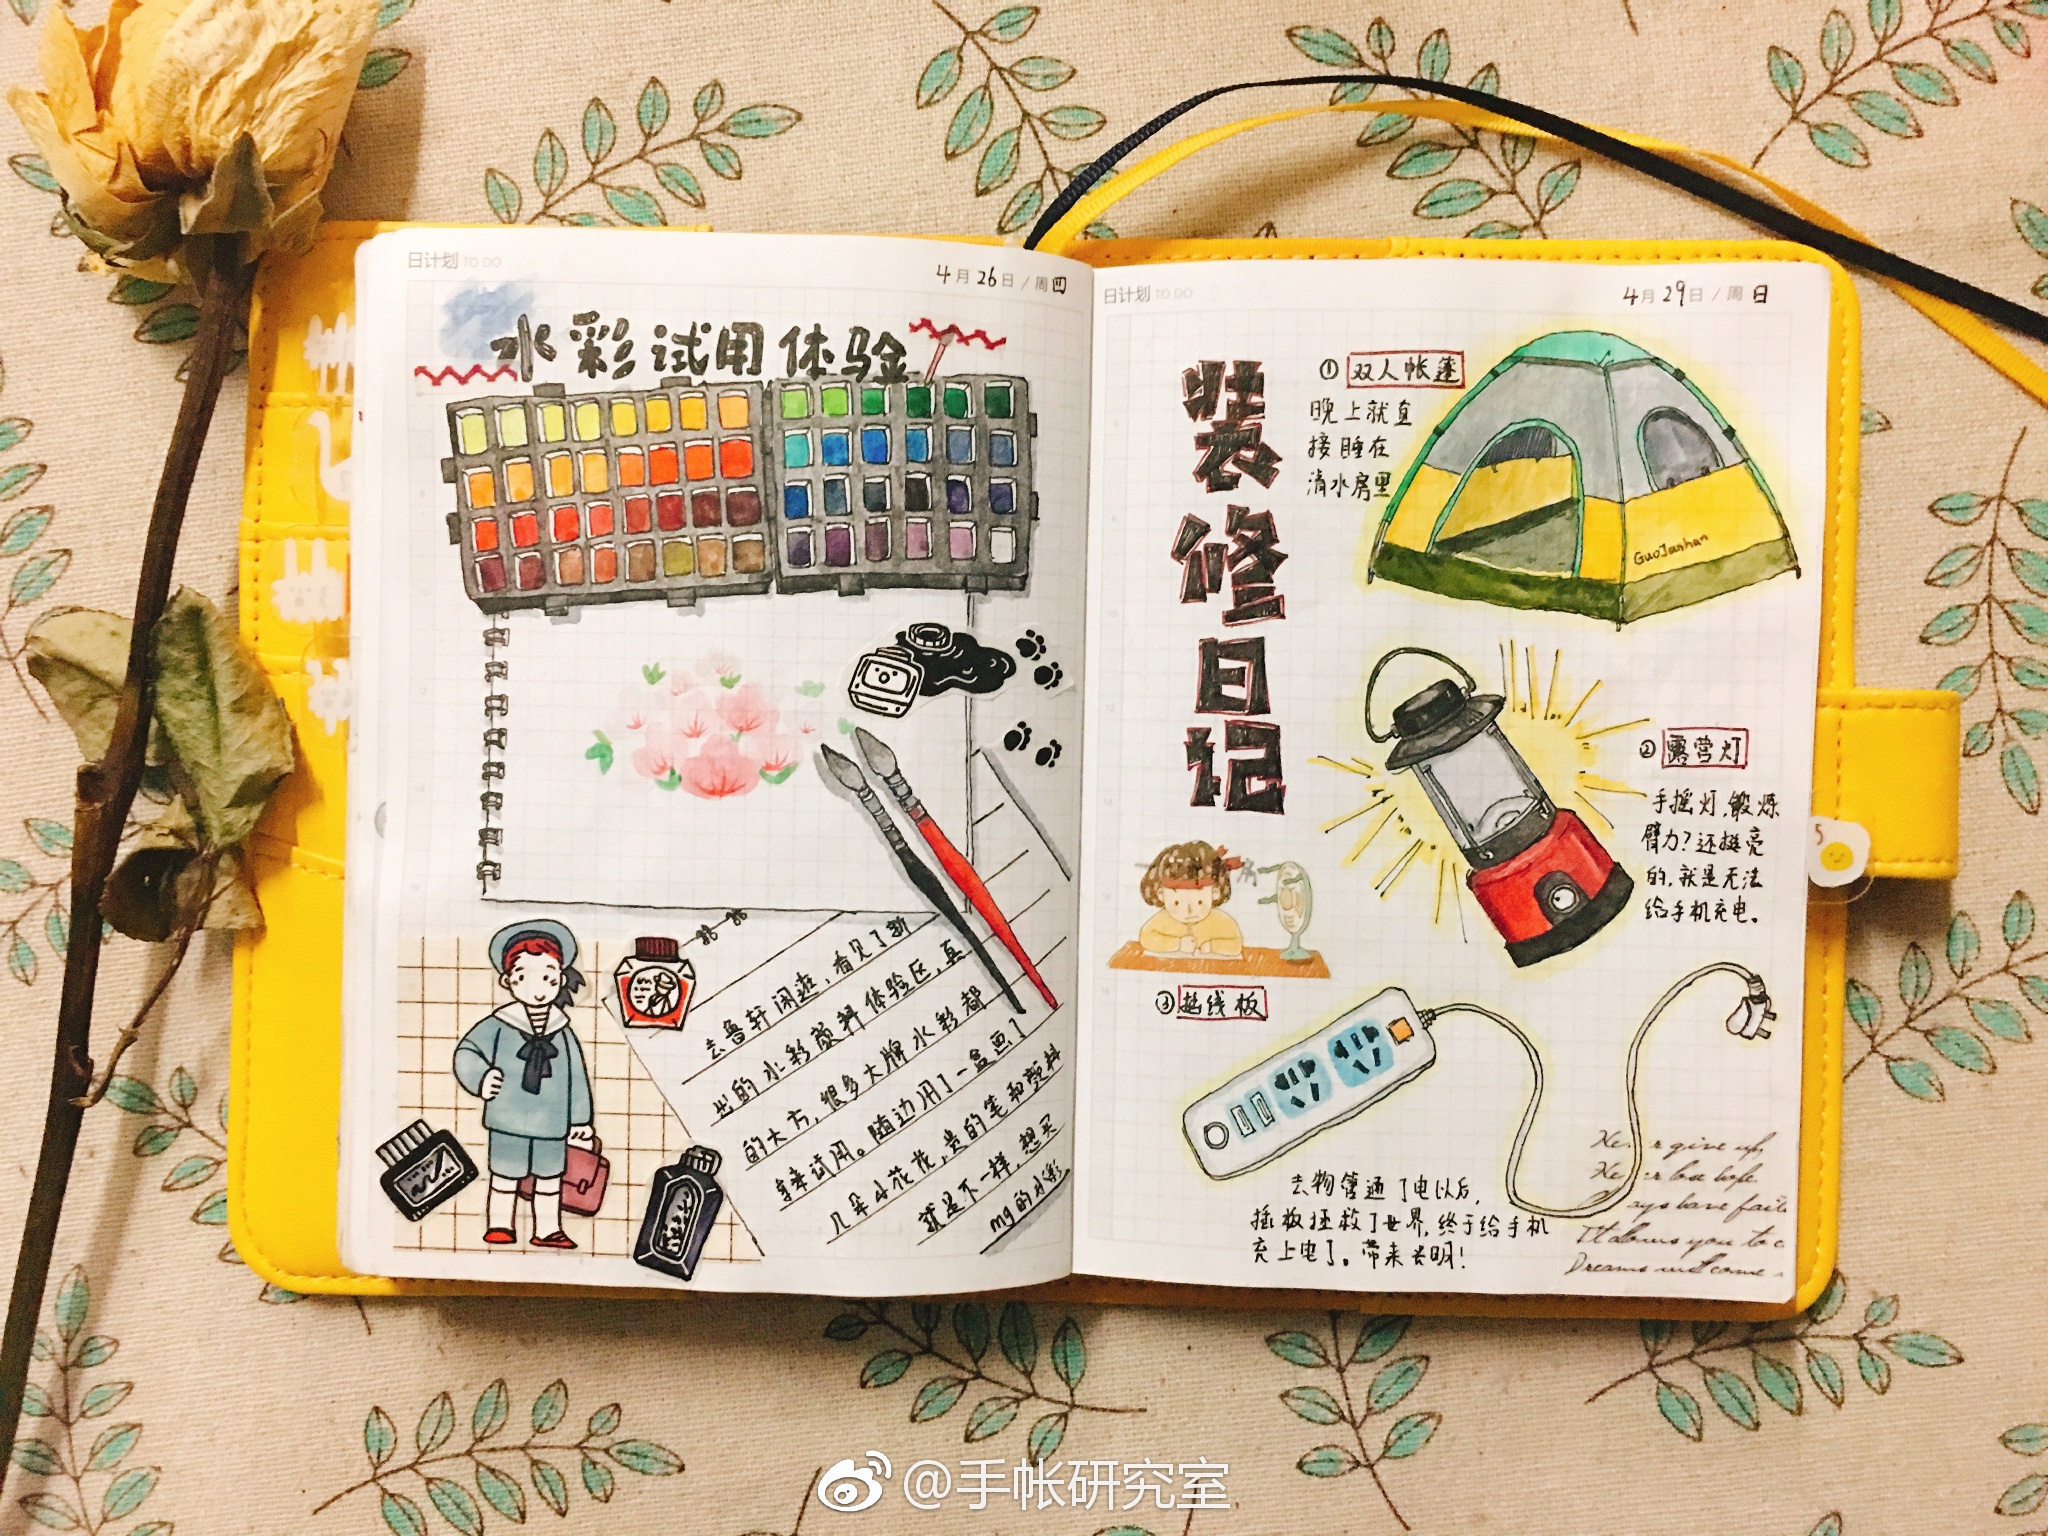 日计划 TO DO
4月26日/周四
水彩试用体验
去鲁轩闲逛，看见了新
出的水彩颜料体验区，真
的大方，很多大牌水彩都
拿来试用。随边用了一盒画了
几朵小花花，贵的笔和颜料
就是不一样，想买
mg的水彩
日计划 TO DO
4月29日/周日
装修日记
① 双人帐篷
晚上就直
接睡在
清水房里
GuoJanhan
② 露营灯
手摇灯，锻炼
臂力？还挺亮
的，就是无法
给手机充电。
③ 插线板
去物管通了电以后，
插板拯救了世界，终于给手机
充上电了。带来光明！
give up,
lose hope
ays have fait
It allows you to
Dreams will come
@手帐研究室